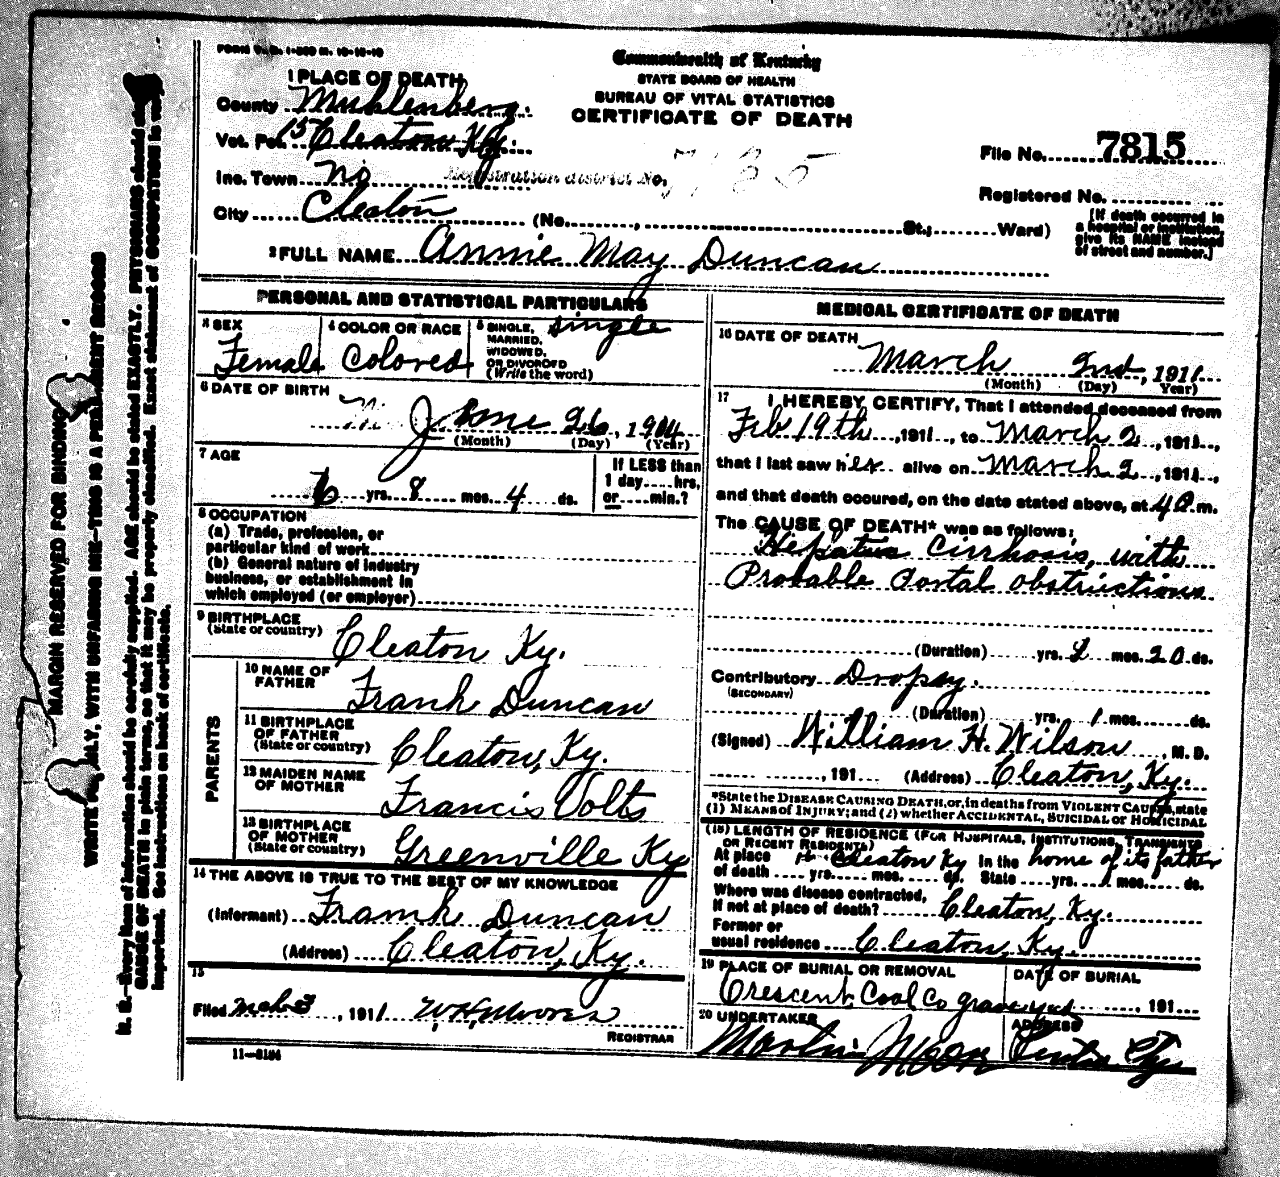 Commonwealth of Kentucky
STATE BOARD OF HEALTH
BUREAU OF VITAL STATISTICS
CERTIFICATE OF DEATH
1 PLACE OF DEATH
County Muhlenberg.
Vot. Pct. 15 Cleaton Ky.
Inc. Town No
Registration district No. 7135
City Cleaton (No. , St.; Ward)
File No. 7815
Registered No.
[If death occurred in a hospital or institution, give its NAME instead of street and number.]
2 FULL NAME Annie May Duncan
PERSONAL AND STATISTICAL PARTICULARS
3 SEX Female
4 COLOR OR RACE Colored
5 SINGLE, MARRIED, WIDOWED, OR DIVORCED (Write the word) Single
6 DATE OF BIRTH
June 26, 1904
(Month) (Day) (Year)
7 AGE
6 yrs. 8 mos. 4 ds.
If LESS than 1 day hrs. or min.?
8 OCCUPATION
(a) Trade, profession, or particular kind of work
(b) General nature of industry business, or establishment in which employed (or employer)
9 BIRTHPLACE (State or country) Cleaton Ky.
PARENTS
10 NAME OF FATHER Frank Duncan
11 BIRTHPLACE OF FATHER (State or country) Cleaton, Ky.
12 MAIDEN NAME OF MOTHER Francis Volts
13 BIRTHPLACE OF MOTHER (State or country) Greenville Ky
14 THE ABOVE IS TRUE TO THE BEST OF MY KNOWLEDGE
(Informant) Frank Duncan
(Address) Cleaton, Ky.
15
Filed Mch 3, 1911 W.H. Moores
REGISTRAR
11-3184
MEDICAL CERTIFICATE OF DEATH
16 DATE OF DEATH
March 2nd, 1911
(Month) (Day) (Year)
17 I HEREBY CERTIFY, That I attended deceased from
Feb 19th, 1911, to March 2, 1911,
that I last saw her alive on March 2, 1911,
and that death occured, on the date stated above, at 4 a.m.
The CAUSE OF DEATH* was as follows:
Cirrhosis, with
Probable Portal obstructions
(Duration) yrs. 2 mos. 20 ds.
Contributory Dropsy.
(SECONDARY)
(Duration) yrs. 1 mos. ds.
(Signed) William H. Wilson, M.D.
, 191 (Address) Cleaton, Ky.
*State the DISEASE CAUSING DEATH, or, in deaths from VIOLENT CAUSES, state
(1) MEANS OF INJURY; and (2) whether ACCIDENTAL, SUICIDAL or HOMICIDAL
(18) LENGTH OF RESIDENCE (FOR HOSPITALS, INSTITUTIONS, TRANSIENTS
OR RECENT RESIDENTS)
At place Cleaton Ky In the home of its father
of death yrs. mos. ds. State yrs. mos. ds.
Where was disease contracted,
If not at place of death? Cleaton, Ky.
Former or
usual residence Cleaton, Ky.
19 PLACE OF BURIAL OR REMOVAL
Crescent Coal Co graveyard
DATE OF BURIAL
, 191
20 UNDERTAKER
Moon
ADDRESS
MARGIN RESERVED FOR BINDING
WRITE ONLY, WITH UNFADING INK—THIS IS A PERMANENT RECORD
N. B.—Every item of information should be carefully supplied. AGE should be stated EXACTLY. PHYSICIANS should
CAUSE OF DEATH in plain terms, so that it may be properly classified. Exact statement of OCCUPATION is very
important. See instructions on back of certificate.